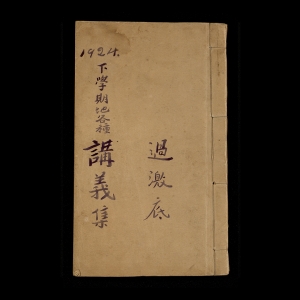 1924.
下學期地各種
講義集
過激底